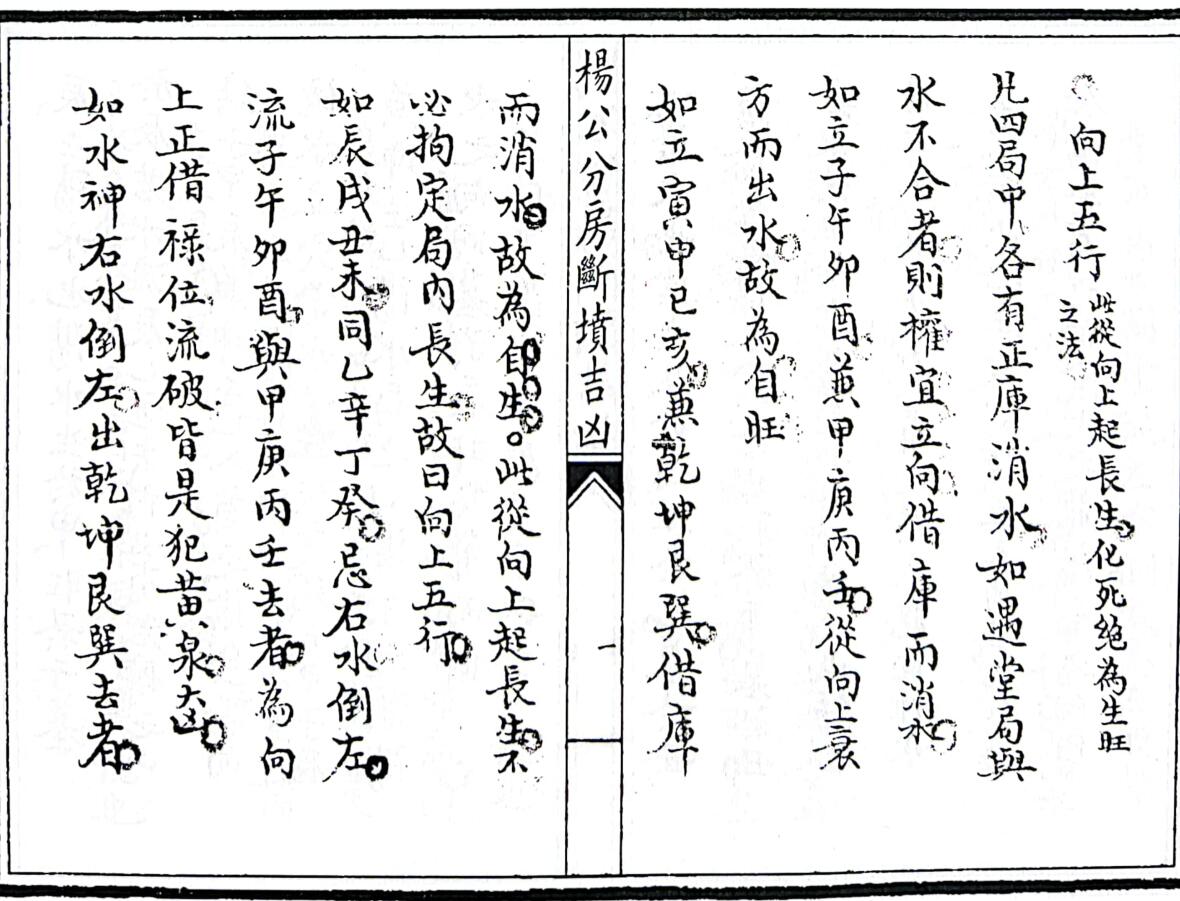 向上五行 此從向上起長生化死絕為生旺
之法
凡四局中各有正庫消水如遇堂局與
水不合者則權宜立向借庫而消水
如立子午卯酉兼甲庚丙壬從向上衰
方而出水故為自旺
如立寅申巳亥兼乾坤艮巽借庫
楊公分房斷墳吉凶
而消水故為自生。此從向上起長生不
必拘定局內長生故曰向上五行
如辰戌丑未同乙辛丁癸忌右水倒左
流子午卯酉與甲庚丙壬去者為向
上正借祿位流破皆是犯黃泉大凶
如水神右水倒左出乾坤艮巽去者